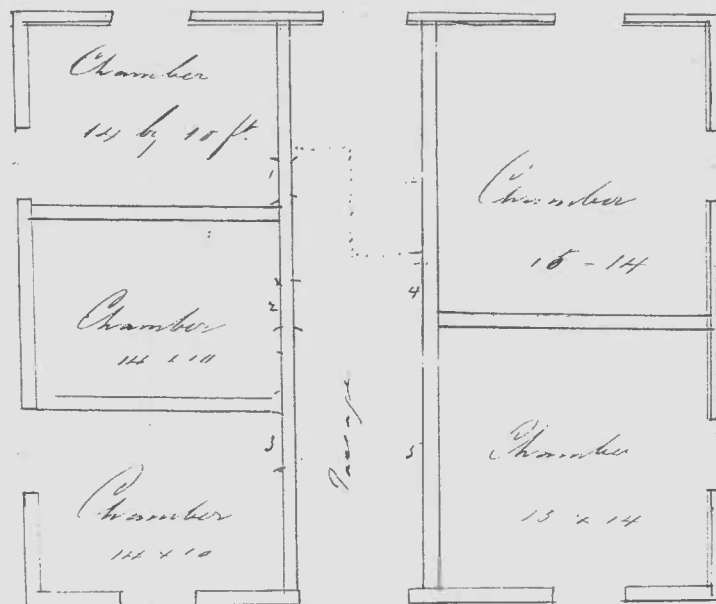 Chamber
14 by 10 ft.
1
Chamber
15 - 14
2
4
Chamber
14 x 10
Passage
3
5
Chamber
15 x 14
Chamber
14 x 10